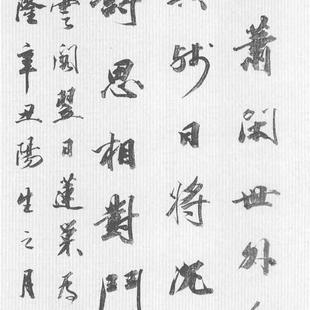 蕭閑世外
日將沈
思相對
雲閣翌日蓮巢為
隆辛丑陽生之月